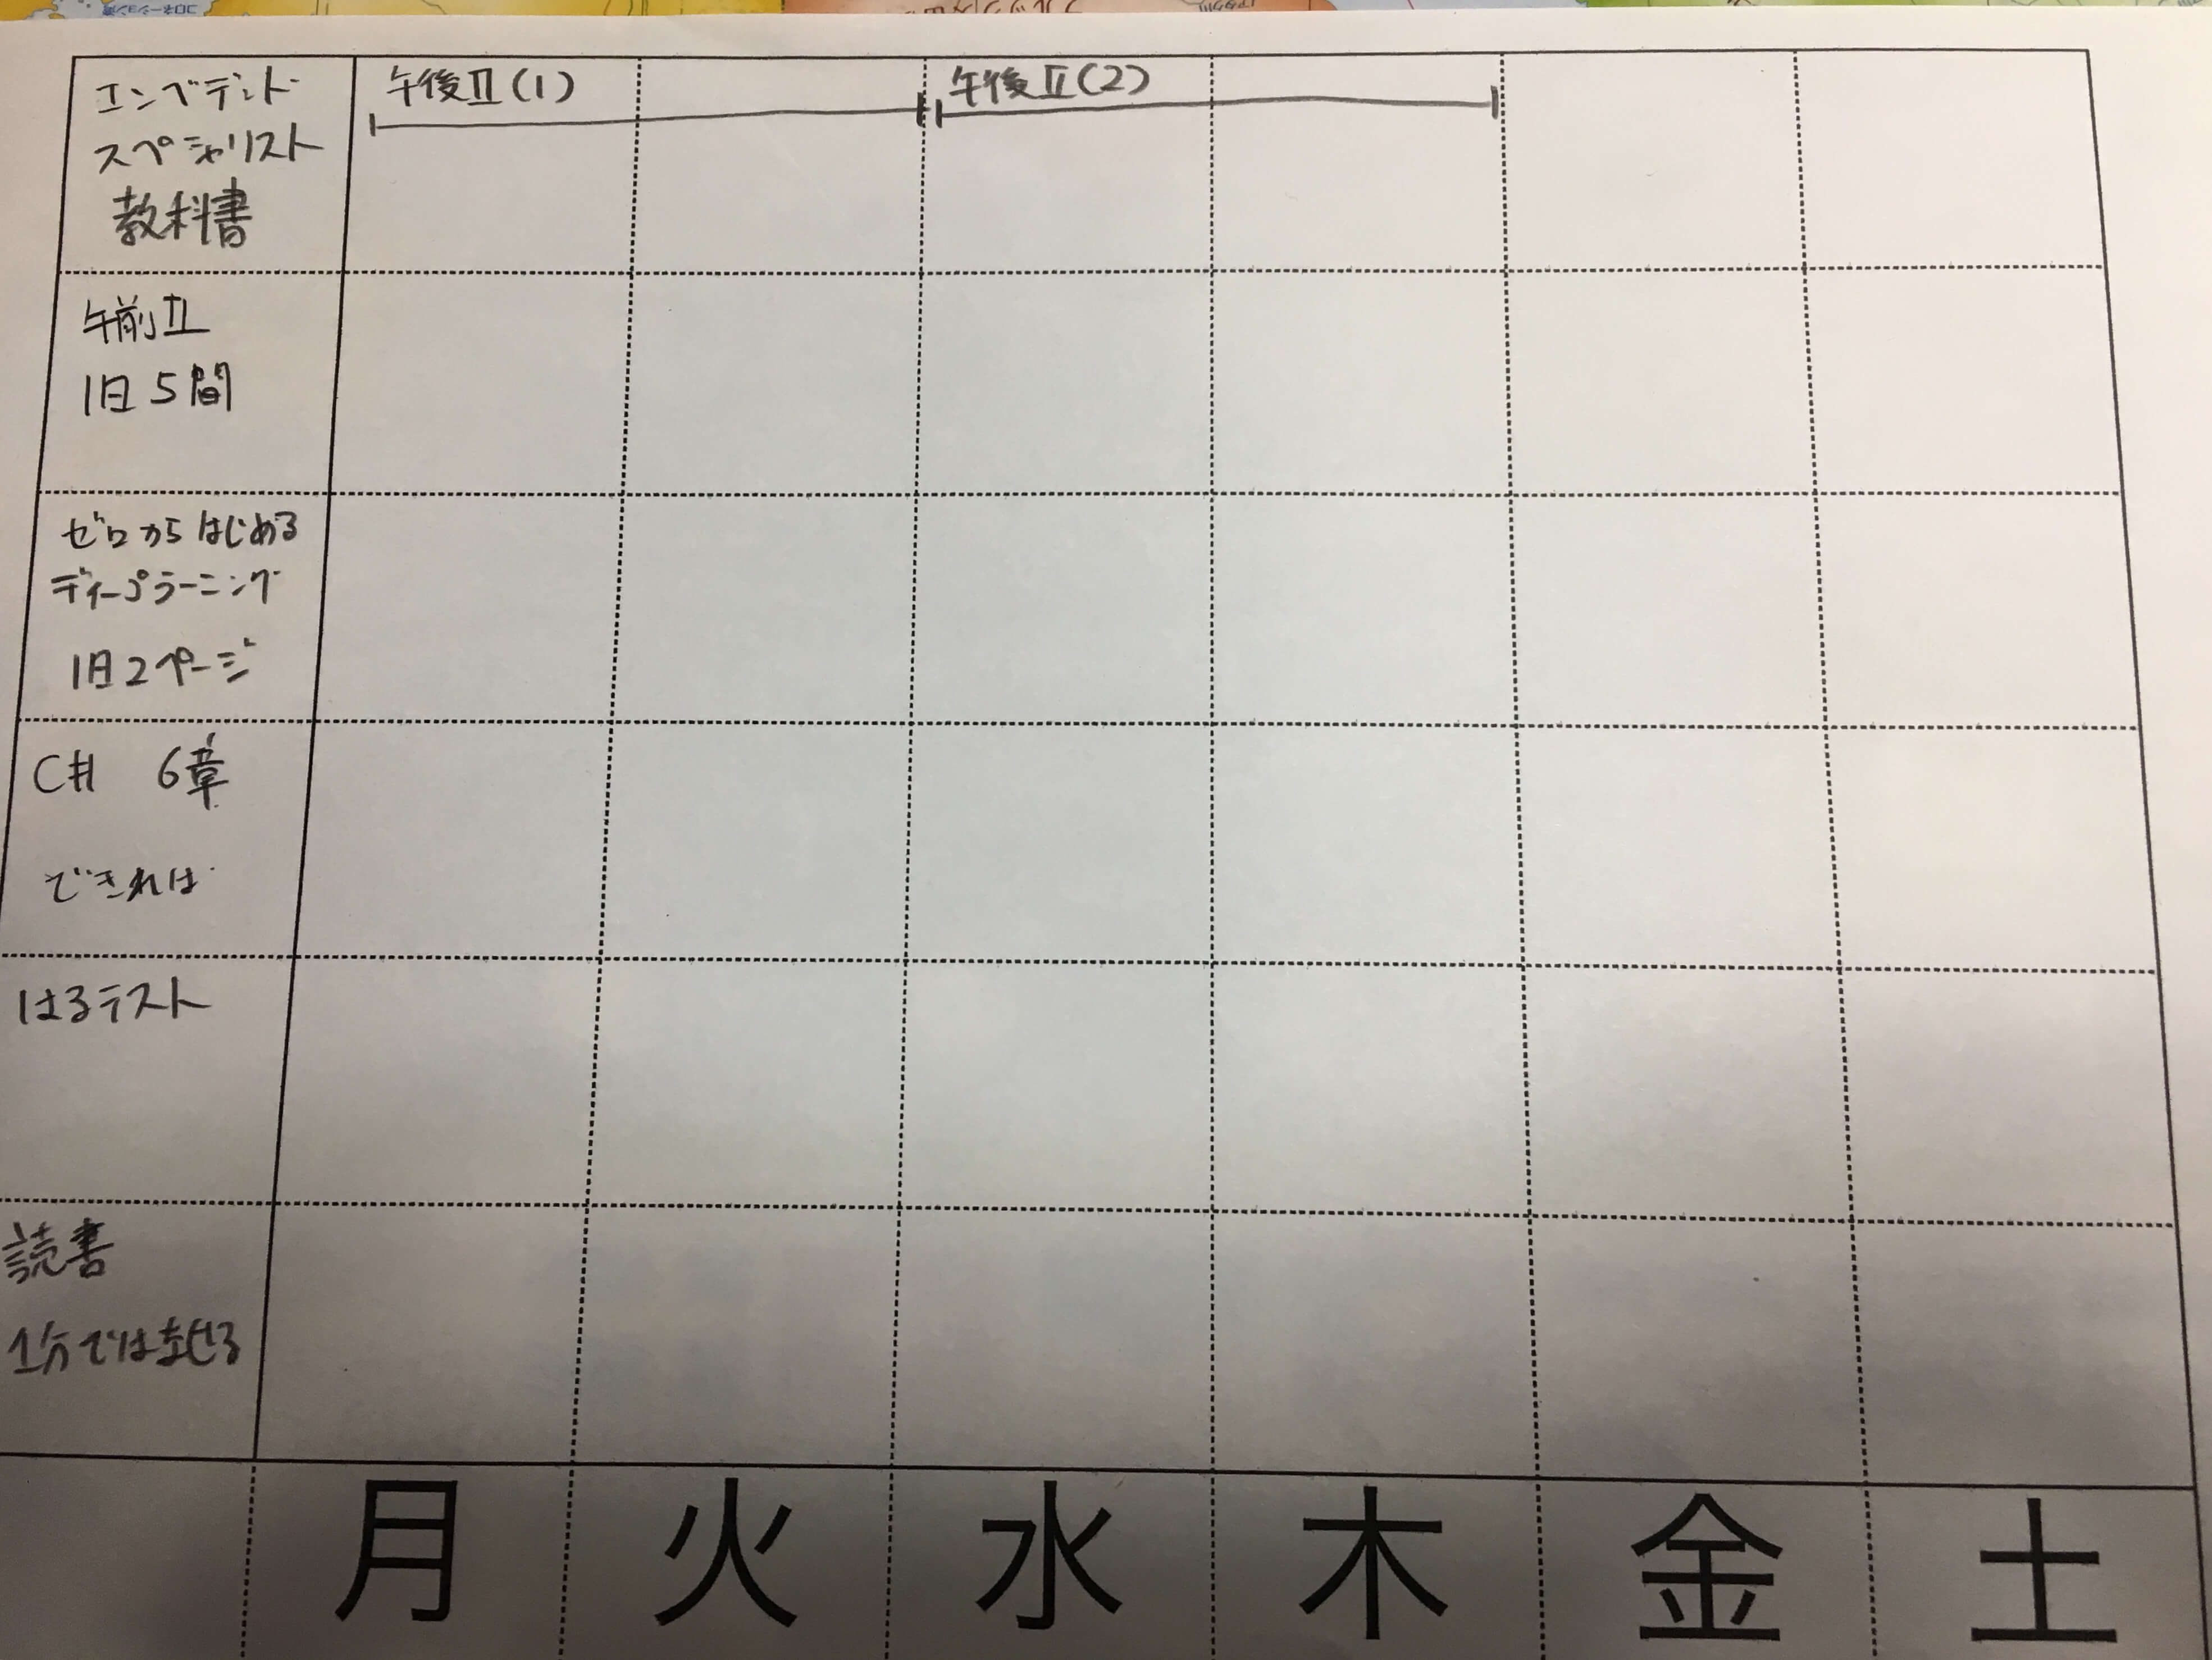 エンベデッド
スペシャリスト
教科書
午後Ⅱ(1)
午後Ⅱ(2)
午前Ⅱ
1日5問
ゼロからはじめる
ディープラーニング
1日2ページ
C# 6章
できれば
はるテスト
読書
1分ではませる
月 火 水 木 金 土